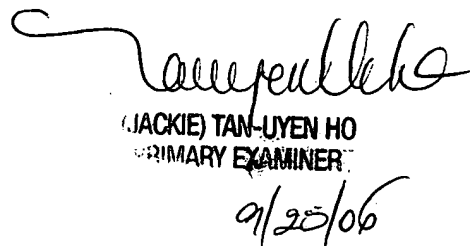 (JACKIE) TAN-UYEN HO
PRIMARY EXAMINER
9/25/06